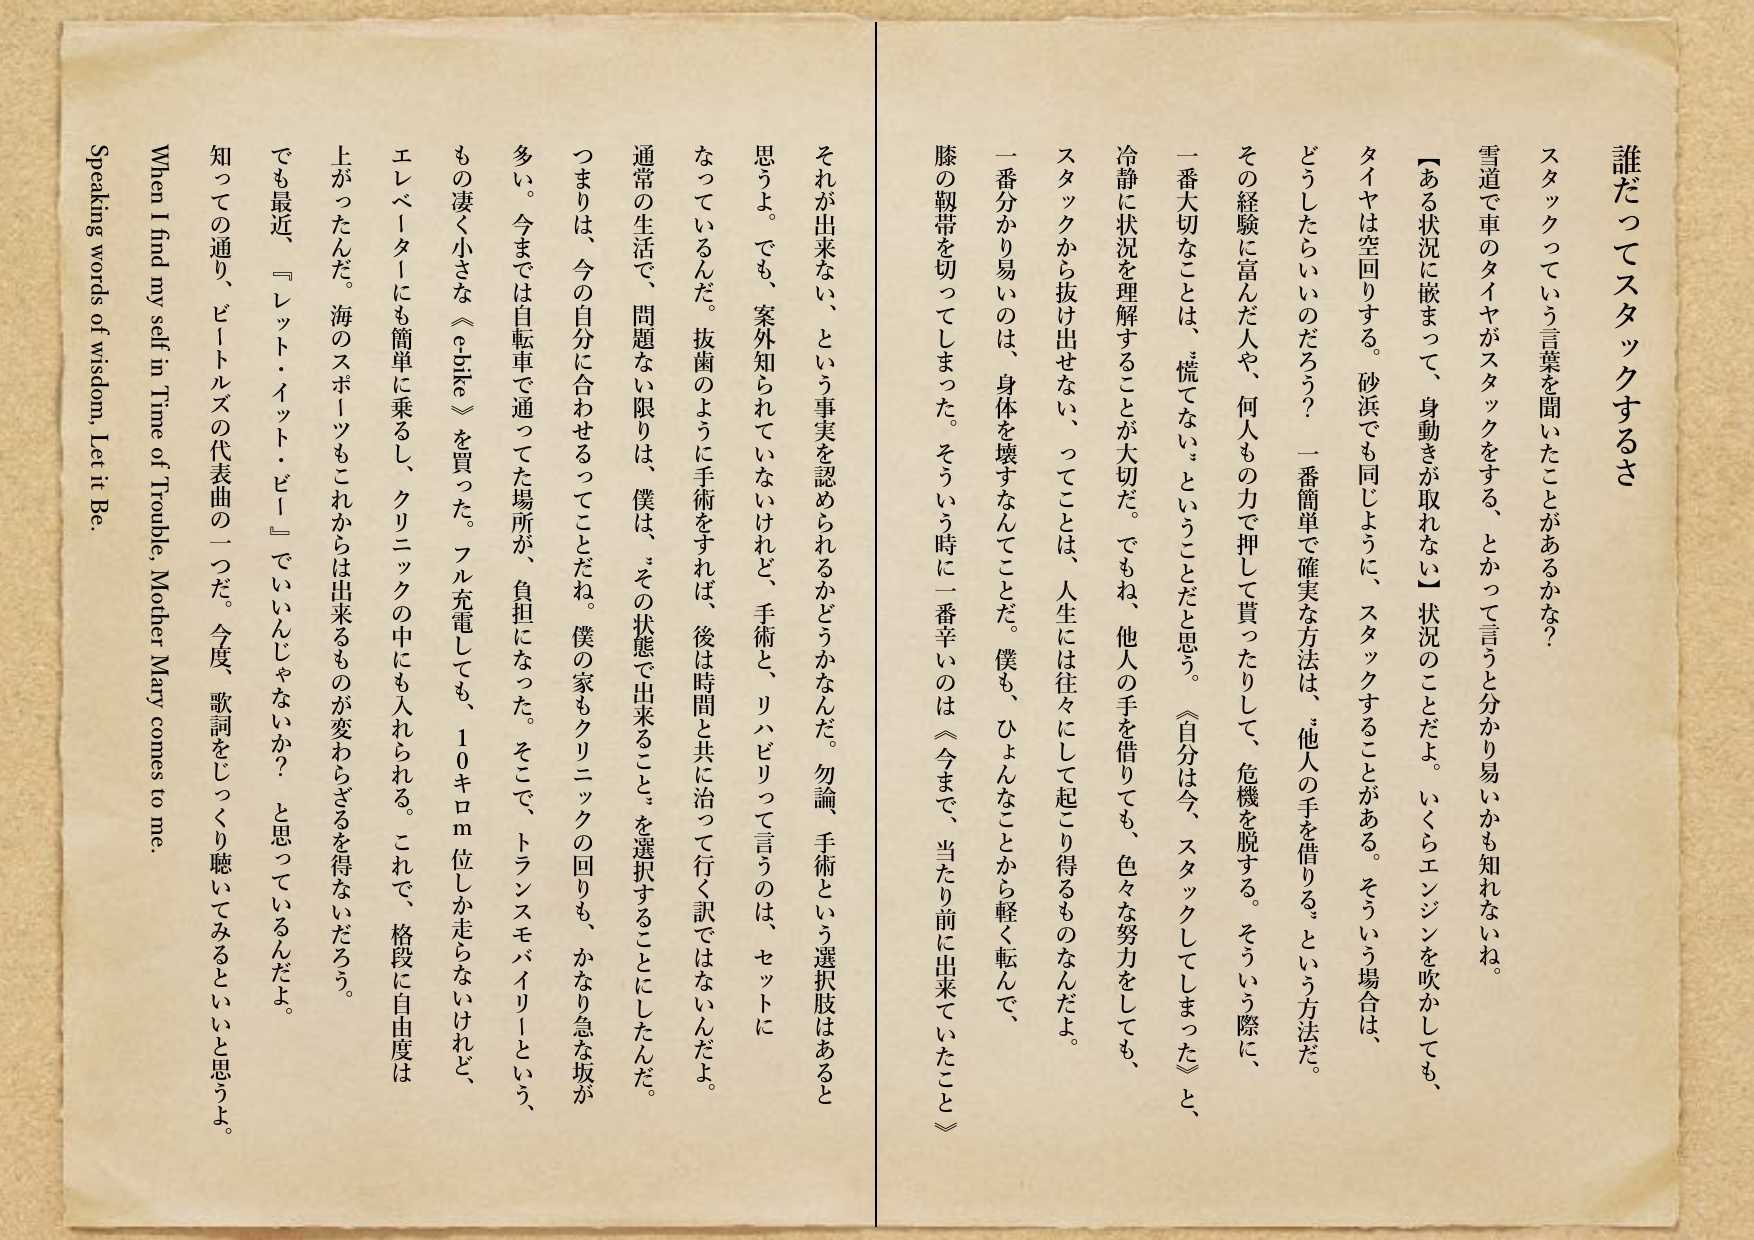 誰だってスタックするさ
スタックっていう言葉を聞いたことがあるかな？
雪道で車のタイヤがスタックをする、とかって言うと分かり易いかも知れないね。
【ある状況に嵌まって、身動きが取れない】状況のことだよ。いくらエンジンを吹かしても、
タイヤは空回りする。砂浜でも同じように、スタックすることがある。そういう場合は、
どうしたらいいのだろう？　一番簡単で確実な方法は、〝他人の手を借りる〟という方法だ。
その経験に富んだ人や、何人もの力で押して貰ったりして、危機を脱する。そういう際に、
一番大切なことは、〝慌てない〟ということだと思う。《自分は今、スタックしてしまった》と、
冷静に状況を理解することが大切だ。でもね、他人の手を借りても、色々な努力をしても、
スタックから抜け出せない、ってことは、人生には往々にして起こり得るものなんだよ。
一番分かり易いのは、身体を壊すなんてことだ。僕も、ひょんなことから軽く転んで、
膝の靱帯を切ってしまった。そういう時に一番辛いのは《今まで、当たり前に出来ていたこと》
それが出来ない、という事実を認められるかどうかなんだ。勿論、手術という選択肢はあると
思うよ。でも、案外知られていないけれど、手術と、リハビリって言うのは、セットに
なっているんだ。抜歯のように手術をすれば、後は時間と共に治って行く訳ではないんだよ。
通常の生活で、問題ない限りは、僕は、〝その状態で出来ること〟を選択することにしたんだ。
つまりは、今の自分に合わせるってことだね。僕の家もクリニックの回りも、かなり急な坂が
多い。今までは自転車で通ってた場所が、負担になった。そこで、トランスモバイリーという、
もの凄く小さな《e-bike》を買った。フル充電しても、10キロm位しか走らないけれど、
エレベーターにも簡単に乗るし、クリニックの中にも入れられる。これで、格段に自由度は
上がったんだ。海のスポーツもこれからは出来るものが変わらざるを得ないだろう。
でも最近、『レット・イット・ビー』でいいんじゃないか？　と思っているんだよ。
知っての通り、ビートルズの代表曲の一つだ。今度、歌詞をじっくり聴いてみるといいと思うよ。
When I find my self in Time of Trouble, Mother Mary comes to me.
Speaking words of wisdom, Let it Be.